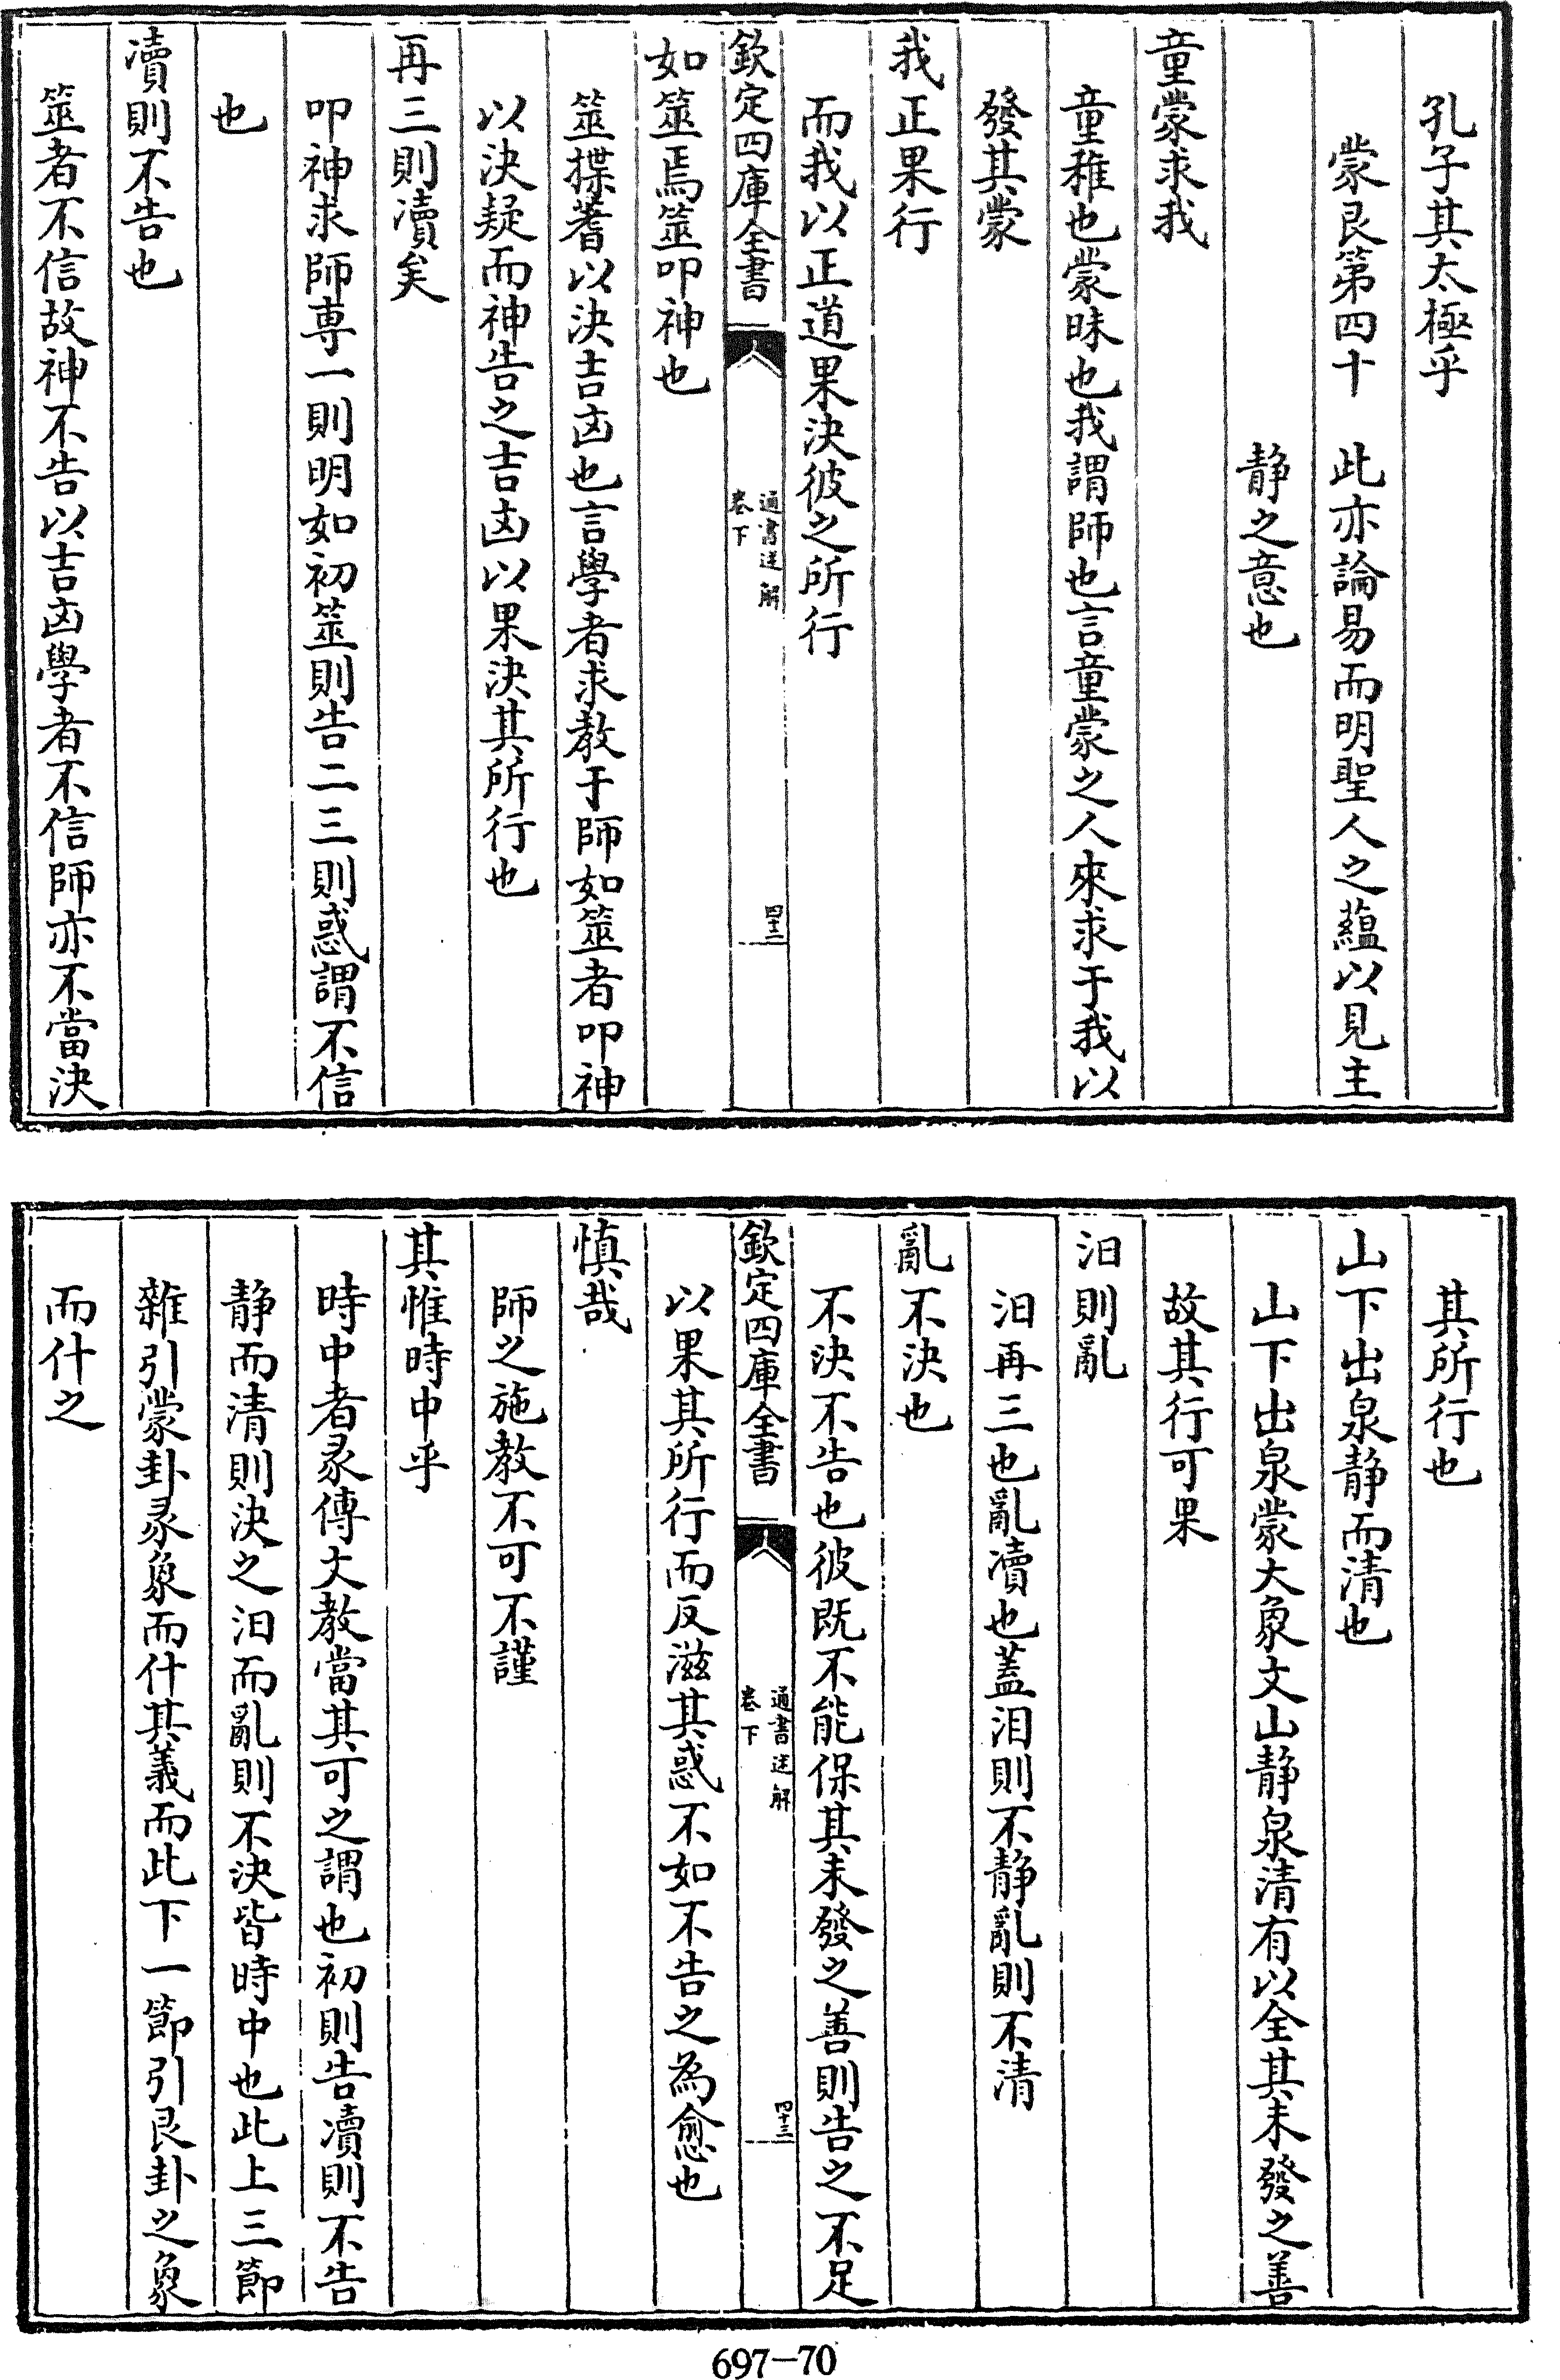 孔子其太極乎
蒙艮第四十　此亦論易而明聖人之蘊以見主
静之意也
童蒙求我
童稚也蒙昧也我謂師也言童蒙之人來求于我以
發其蒙
我正果行
而我以正道果決彼之所行
欽定四庫全書
通書述解
卷下
四十二
如筮焉筮叩神也
筮揲蓍以決吉凶也言學者求教于師如筮者叩神
以決疑而神告之吉凶以果決其所行也
再三則瀆矣
叩神求師専一則明如初筮則告二三則惑謂不信
也
瀆則不告也
筮者不信故神不告以吉凶學者不信師亦不當決
其所行也
山下出泉静而清也
山下出泉蒙大象文山静泉清有以全其未發之善
故其行可果
汩則亂
汩再三也亂瀆也蓋汩則不静亂則不清
亂不決也
不決不告也彼既不能保其未發之善則告之不足
欽定四庫全書
通書述解
卷下
四十三
以果其所行而反滋其惑不如不告之為愈也
慎哉
師之施教不可不謹
其惟時中乎
時中者彖傳文教當其可之謂也初則告瀆則不告
静而清則決之汩而亂則不決皆時中也此上三節
雜引蒙卦彖象而什其義而此下一節引艮卦之象
而什之
697-70